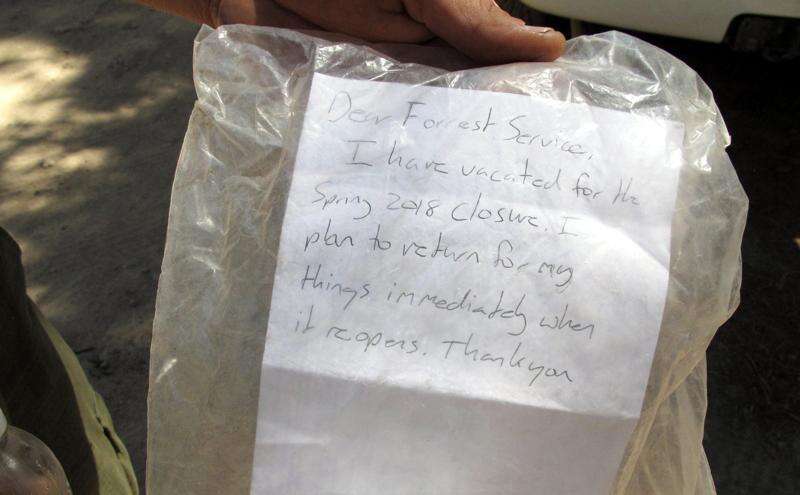 Dear Forrest Service,
I have vacated for the
Spring 2018 closure. I
plan to return for my
things immediately when
it reopens. Thankyou